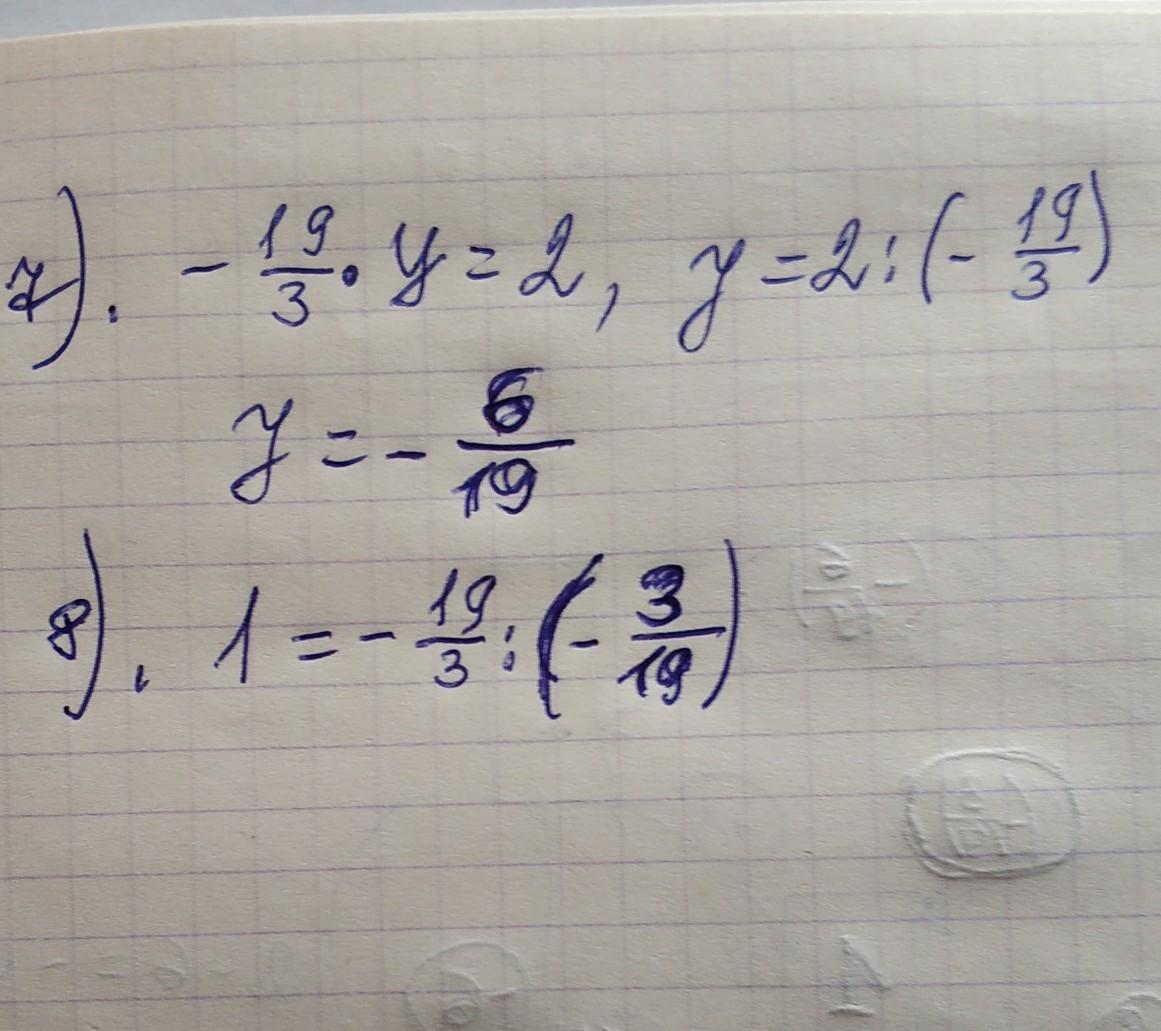 7). - 19/3 · y = 2, y = 2 : (- 19/3)
y = - 6/19
8). 1 = - 19/3 : (- 3/19)